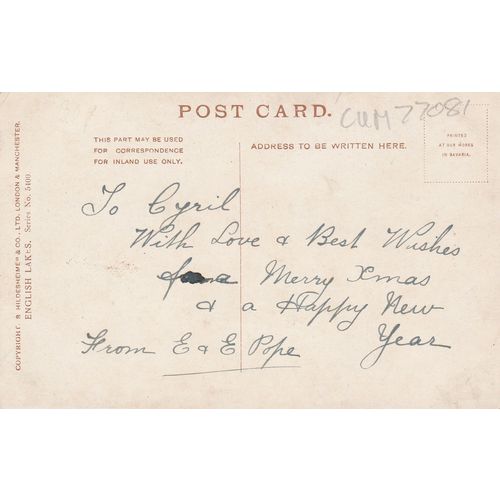 POST CARD.
CUM 77081
THIS PART MAY BE USED
FOR CORRESPONDENCE
FOR INLAND USE ONLY.
ADDRESS TO BE WRITTEN HERE.
PRINTED
AT OUR WORKS
IN BAVARIA.
COPYRIGHT. R HILDESHEIMER & CO., LTD. LONDON & MANCHESTER.
ENGLISH LAKES. Series No. 5400.
To Cyril
With Love & Best Wishes
a Merry Xmas
& a Happy New
Year
From E & E Pope